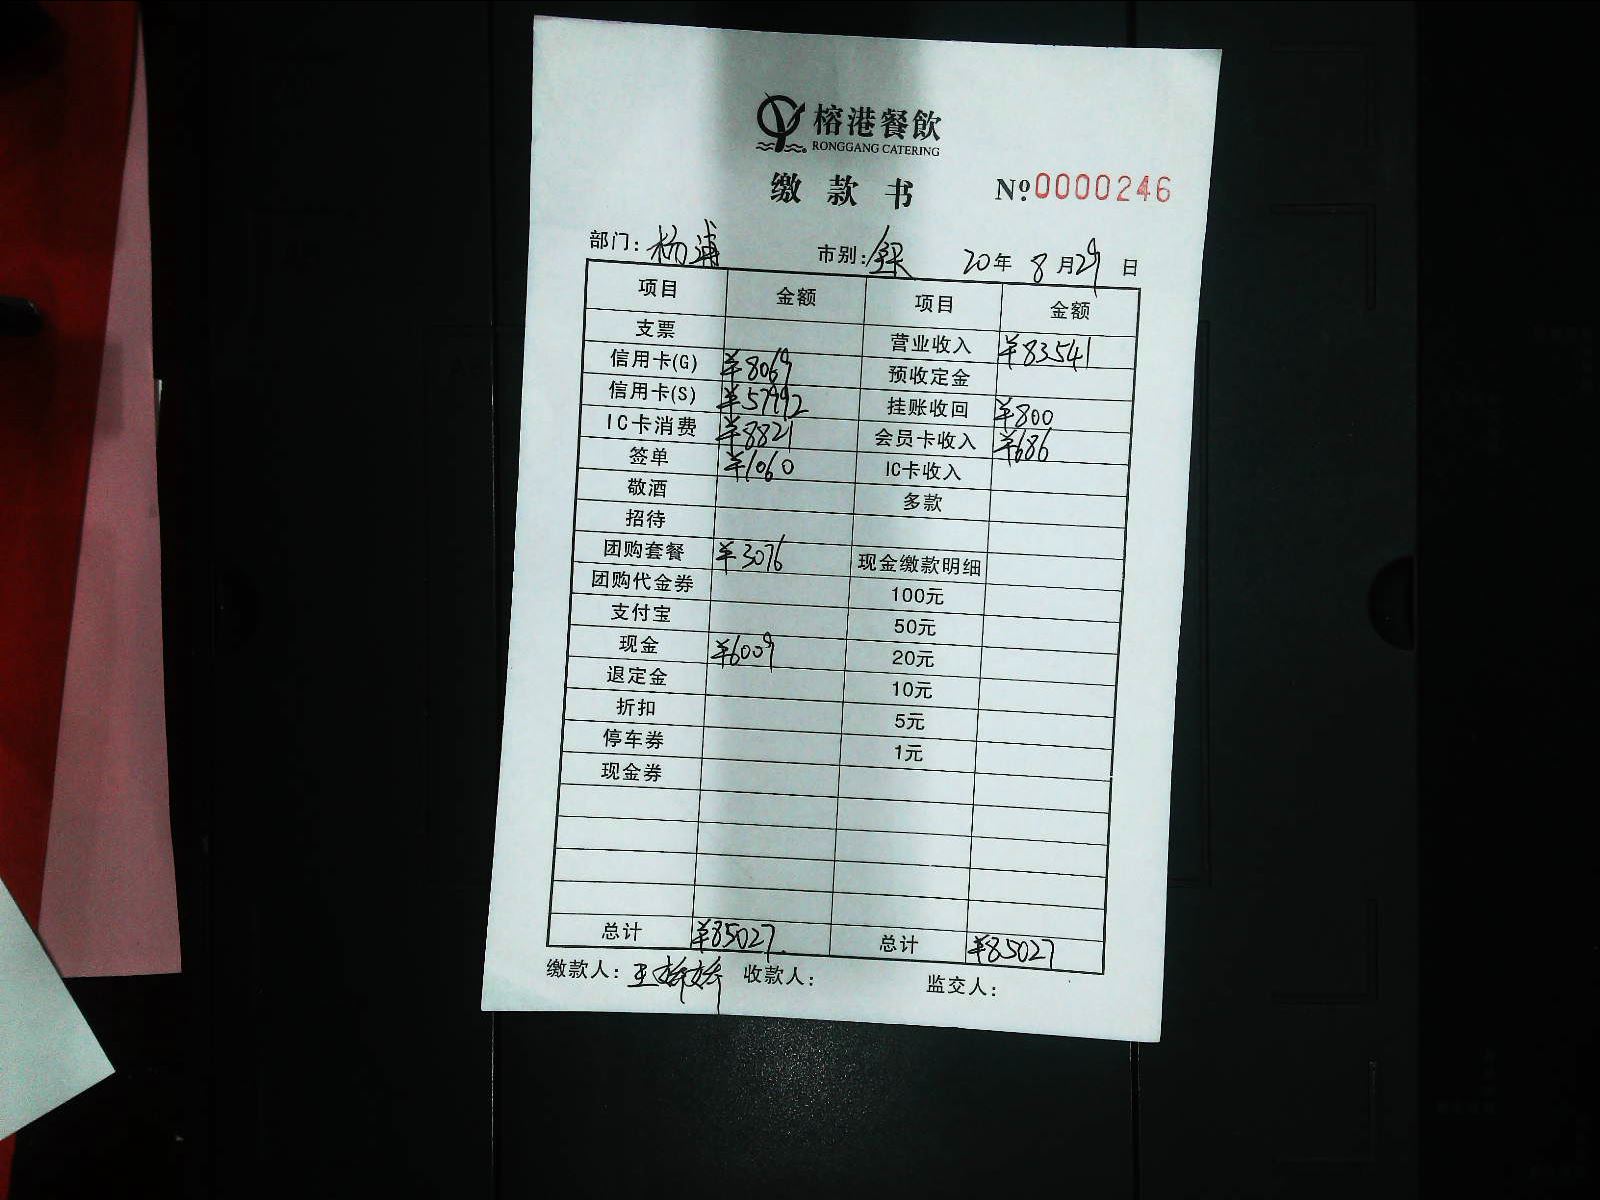 榕港餐飲
RONGGANG CATERING
缴款书 №0000246
部门：杨浦 市别：全 20年8月29日
项目 金额 项目 金额
支票 营业收入 ¥83541
信用卡(G) ¥8069 预收定金
信用卡(S) ¥57992 挂账收回 ¥800
IC卡消费 ¥8821 会员卡收入 ¥686
签单 ¥1060 IC卡收入
敬酒 多款
招待
团购套餐 ¥3076 现金缴款明细
团购代金券 100元
支付宝 50元
现金 ¥6009 20元
退定金 10元
折扣 5元
停车券 1元
现金券
总计 ¥85027 总计 ¥85027
缴款人：王娇娇 收款人： 监交人：